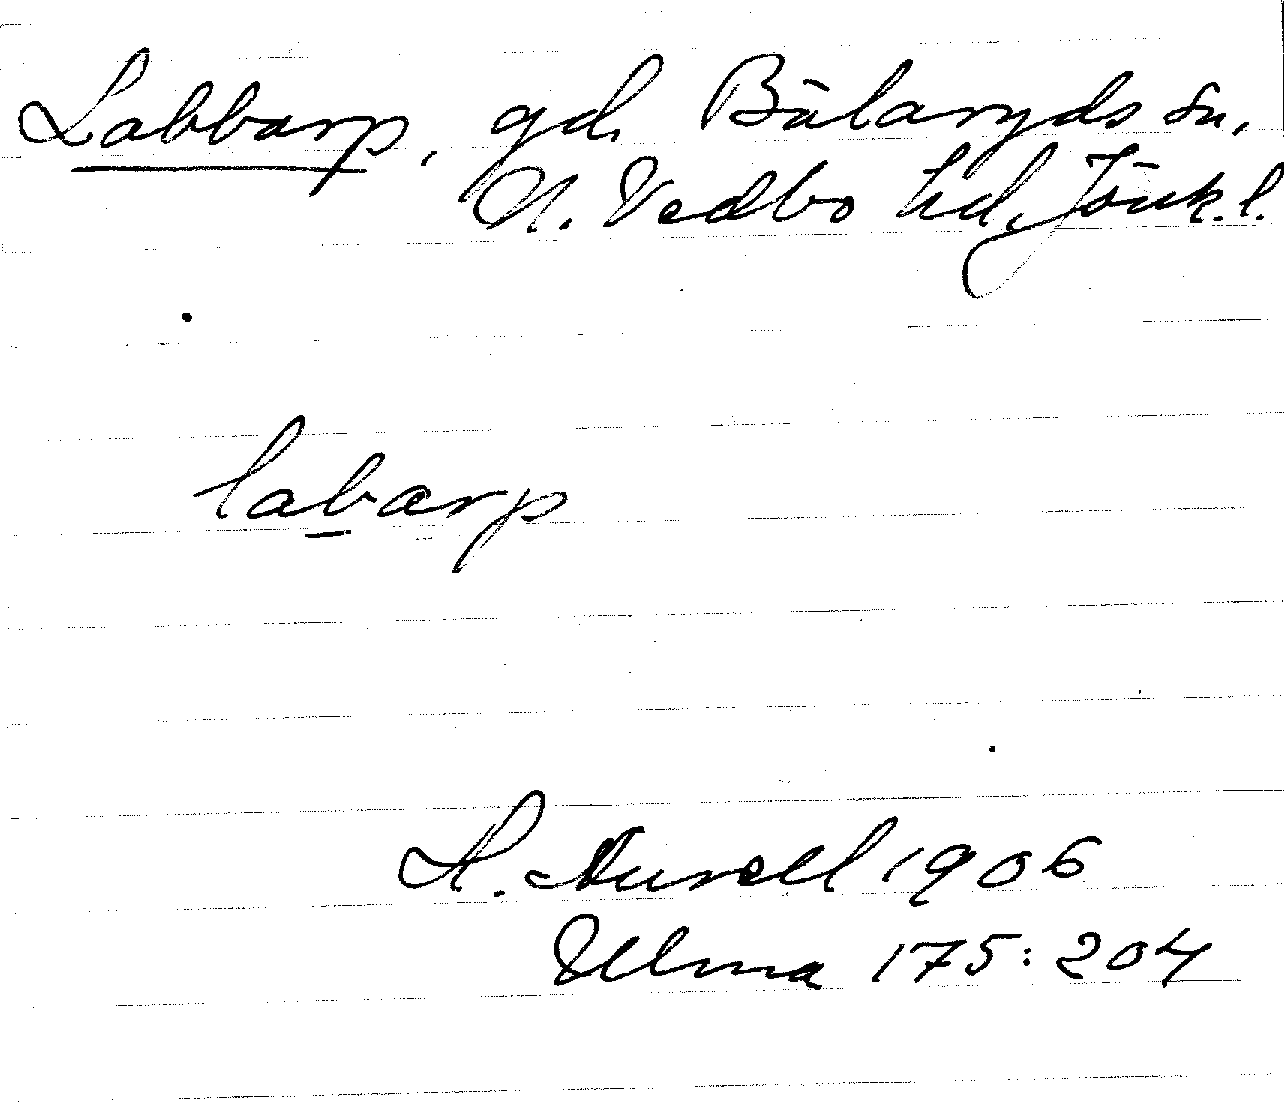 Labbarp, gd, Bälaryds sn,
N. Vedbo hd, Jönk. l.
labarp
A. Nurell 1906
Ulma 175:204